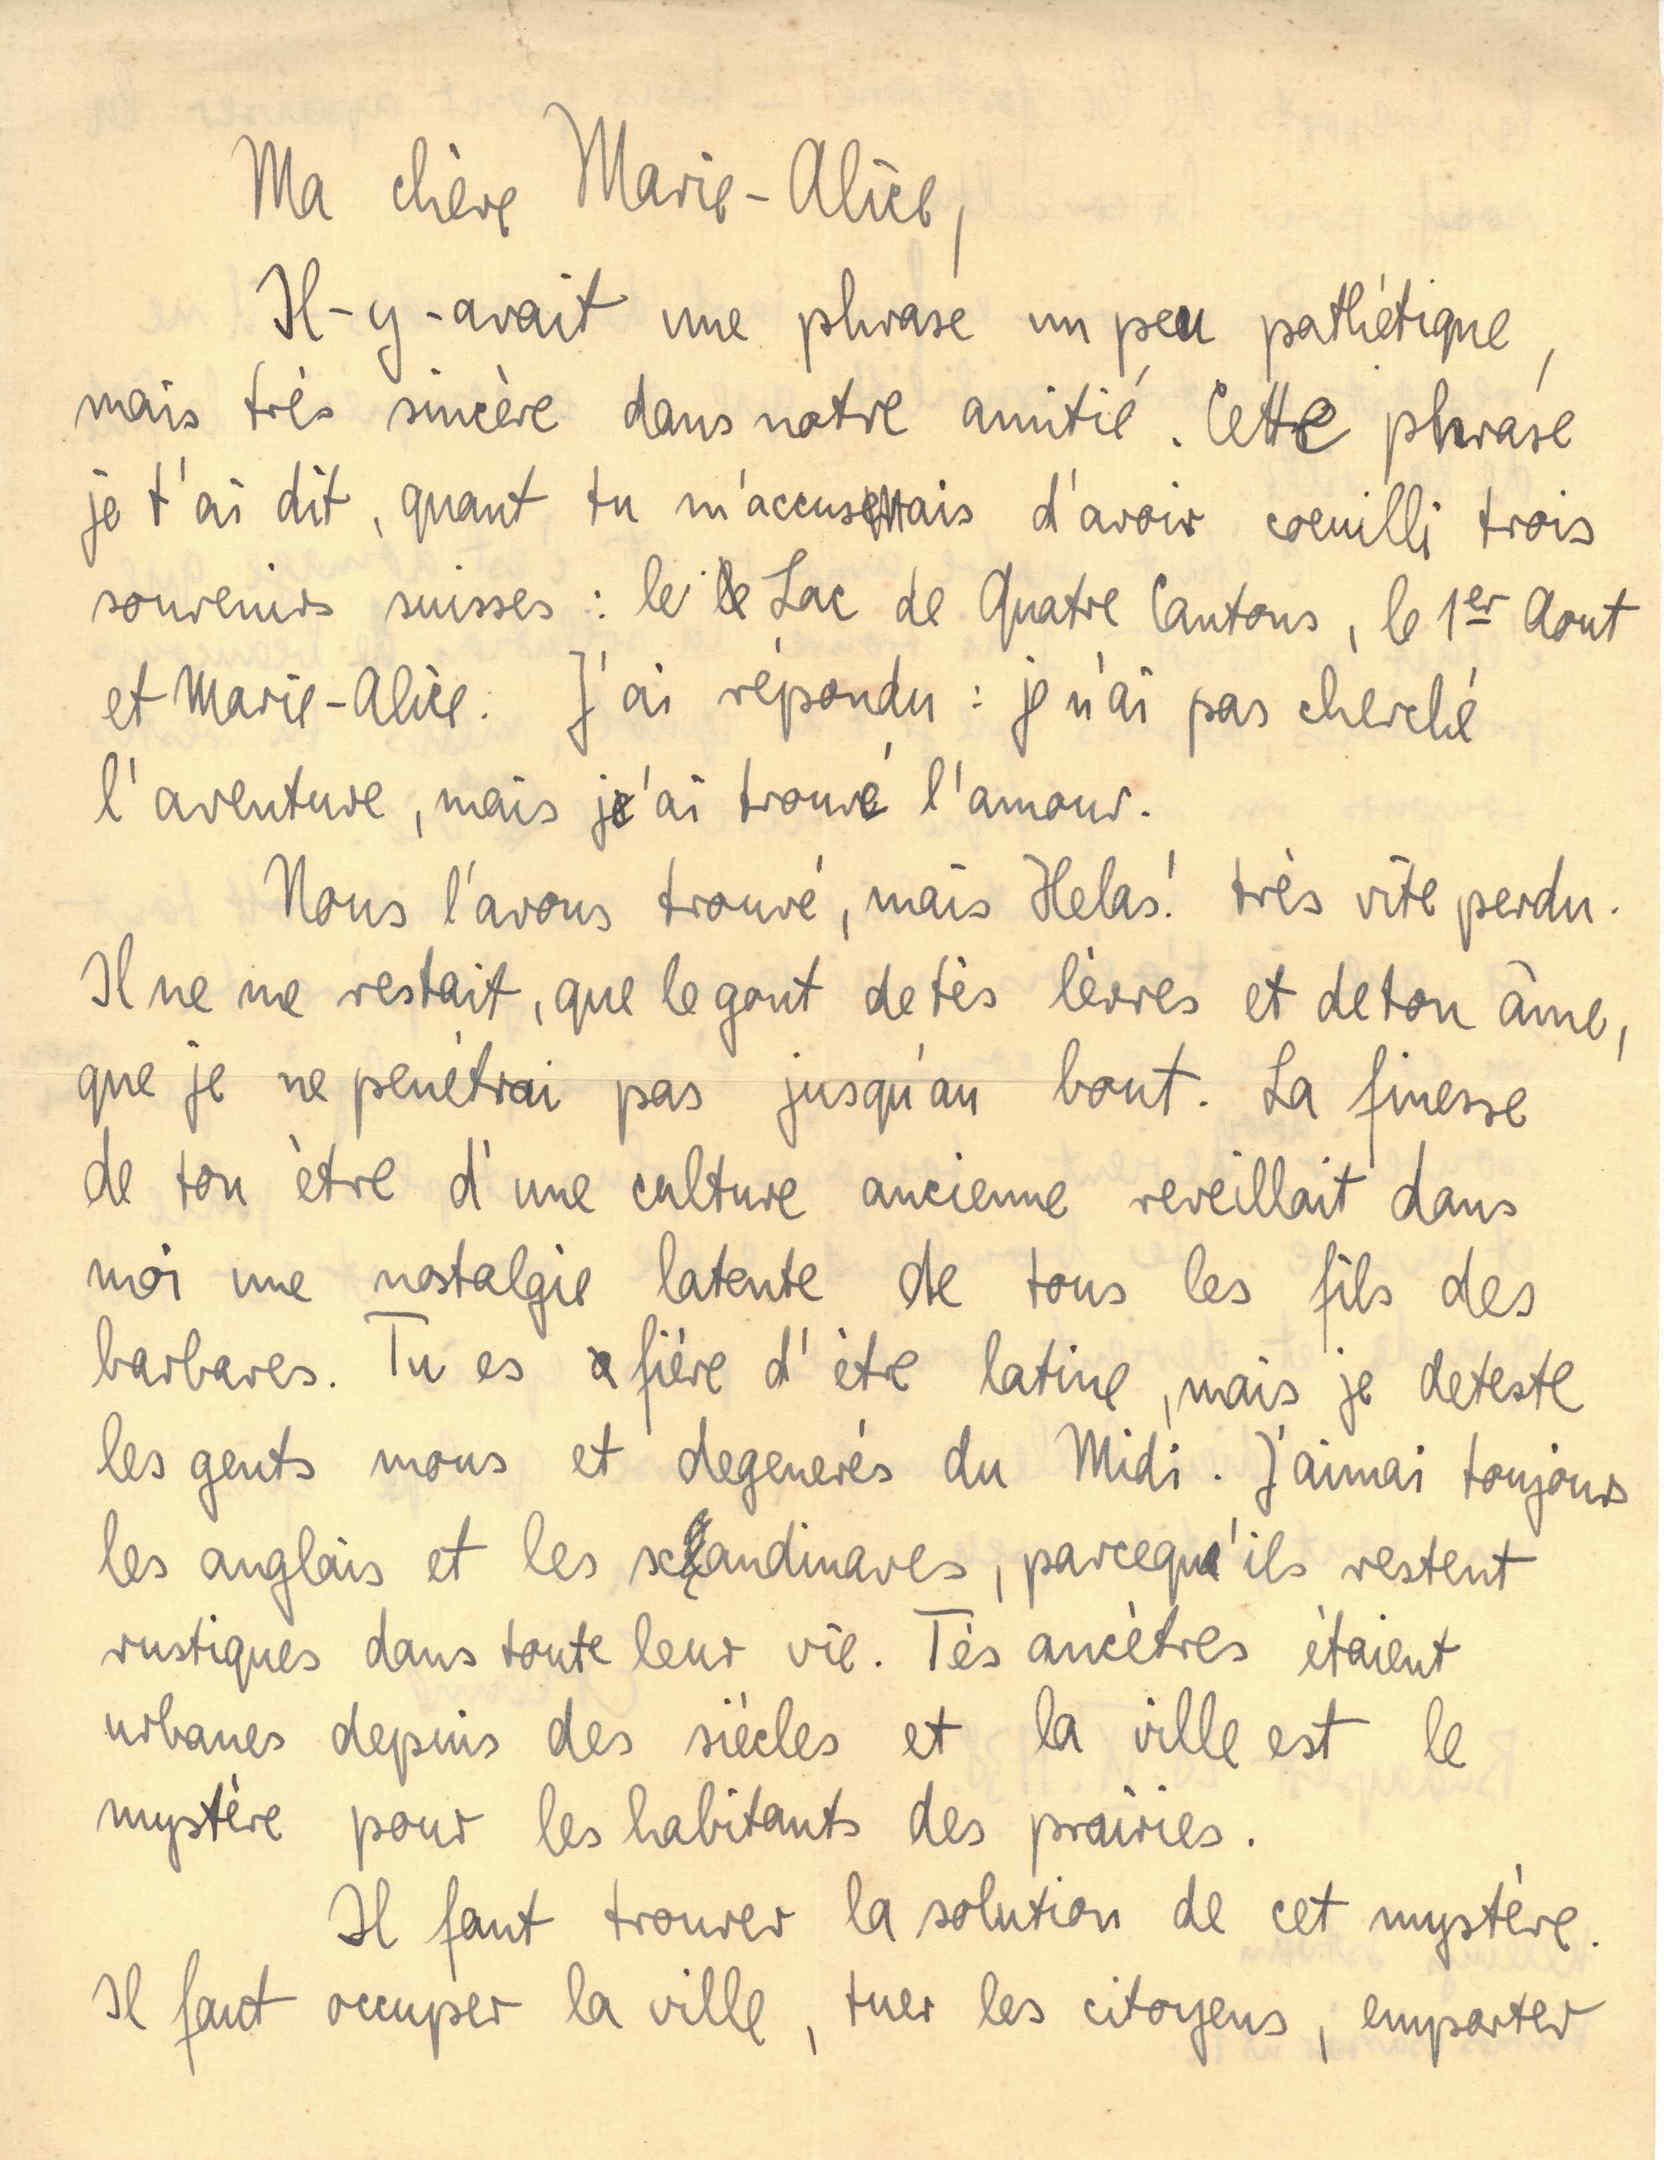 Ma chère Marie-Alice,
Il-y-avait une phrase un peu pathétique,
mais très sincère dans notre amitié. Cette phrase
je t'ai dit, quant tu m'accusais d'avoir coeuilli trois
souvenirs suisses : le Lac de Quatre Cantons, le 1er Aout
et Marie-Alice. J'ai répondu : je n'ai pas cherché
l'aventure, mais j'ai trouvé l'amour.
Nous l'avons trouvé, mais Helas! très vite perdu.
Il ne me restait, que le gout de tès lèvres et de ton âme,
que je ne penétrai pas jusqu'au bout. La finesse
de ton ètre d'une culture ancienne reveillait dans
moi une nostalgie latente de tous les fils des
barbares. Tu es fière d'ètre latine, mais je deteste
les gents mous et degenerés du Midi. J'aimai toujours
les anglais et les scandinaves, parcequ'ils restent
rustiques dans toute leur vie. Tès ancètres ètaient
urbanes depuis des siècles et la ville est le
mystère pour les habitants des prairies.
Il faut trouver la solution de cet mystère.
Il faut occuper la ville, tuer les citoyens, emporter